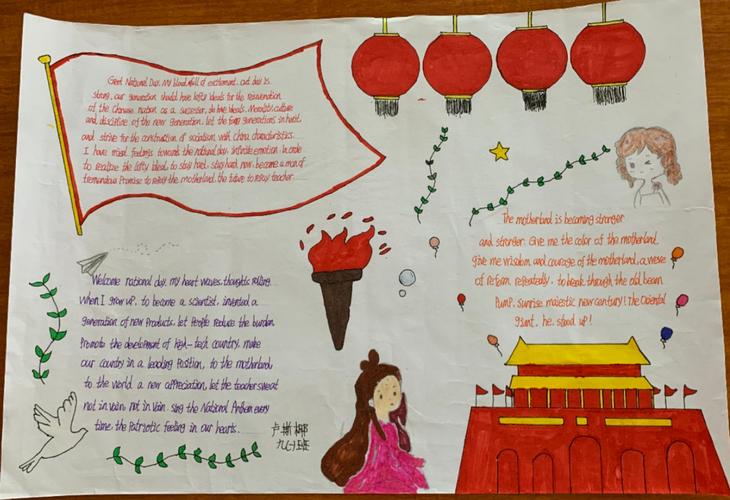 Great National Day, My blood full of excitement. out day is
strong. our generation should have lofty ideals for the rejuvenation
of the Chinese nation as a successor. do have ideals. Morality. culture
and discipline of the new generation. let the generations in hard.
and strive for the construction of socialism with China characteristics.
I have mixed feelings towards the national day. infinite emotion. In order
to realize the lofty ideal, to study hard, study hard now, become a man of
tremendous Promise to relay the motherland. the future to relay teacher.
Welcome national day. my heart waves. thoughts rolling.
When I grow up. to become a scientist. invented a
generation of new Products. let People reduce the burden
Promote the development of high-tech country. make
our country in a leading Position, to the motherland.
to the world a new appreciation, let the teacher sweat
not in vain. not in vain. sing the National Anthem every
time. the Patriotic feeling in our hearts.
九(一)班
The motherland is becoming stronger
and stronger. Give me the color of the motherland.
give me wisdom and courage of the motherland, a wave
of reform repeatedly. to break through the old
Pump. sunrise majestic new century! The Oriental
giant. he. stood up!